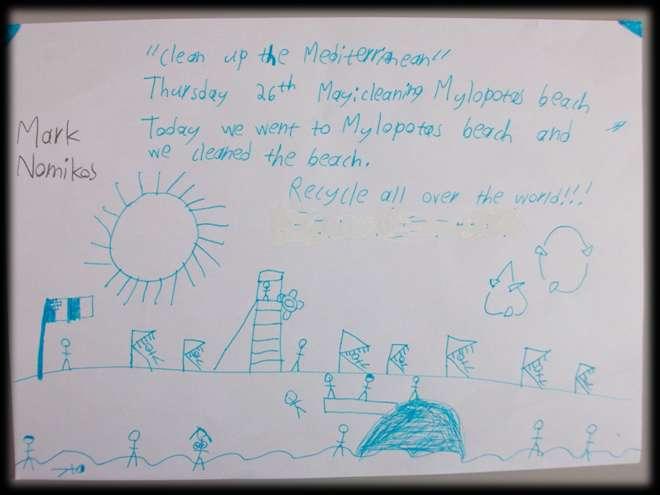 "Clean up the Mediterranean"
Thursday 26th May:cleaning Mylopotas beach
Today we went to Mylopotas beach and
we cleaned the beach.
Mark
Nomikos
Recycle all over the world!!!